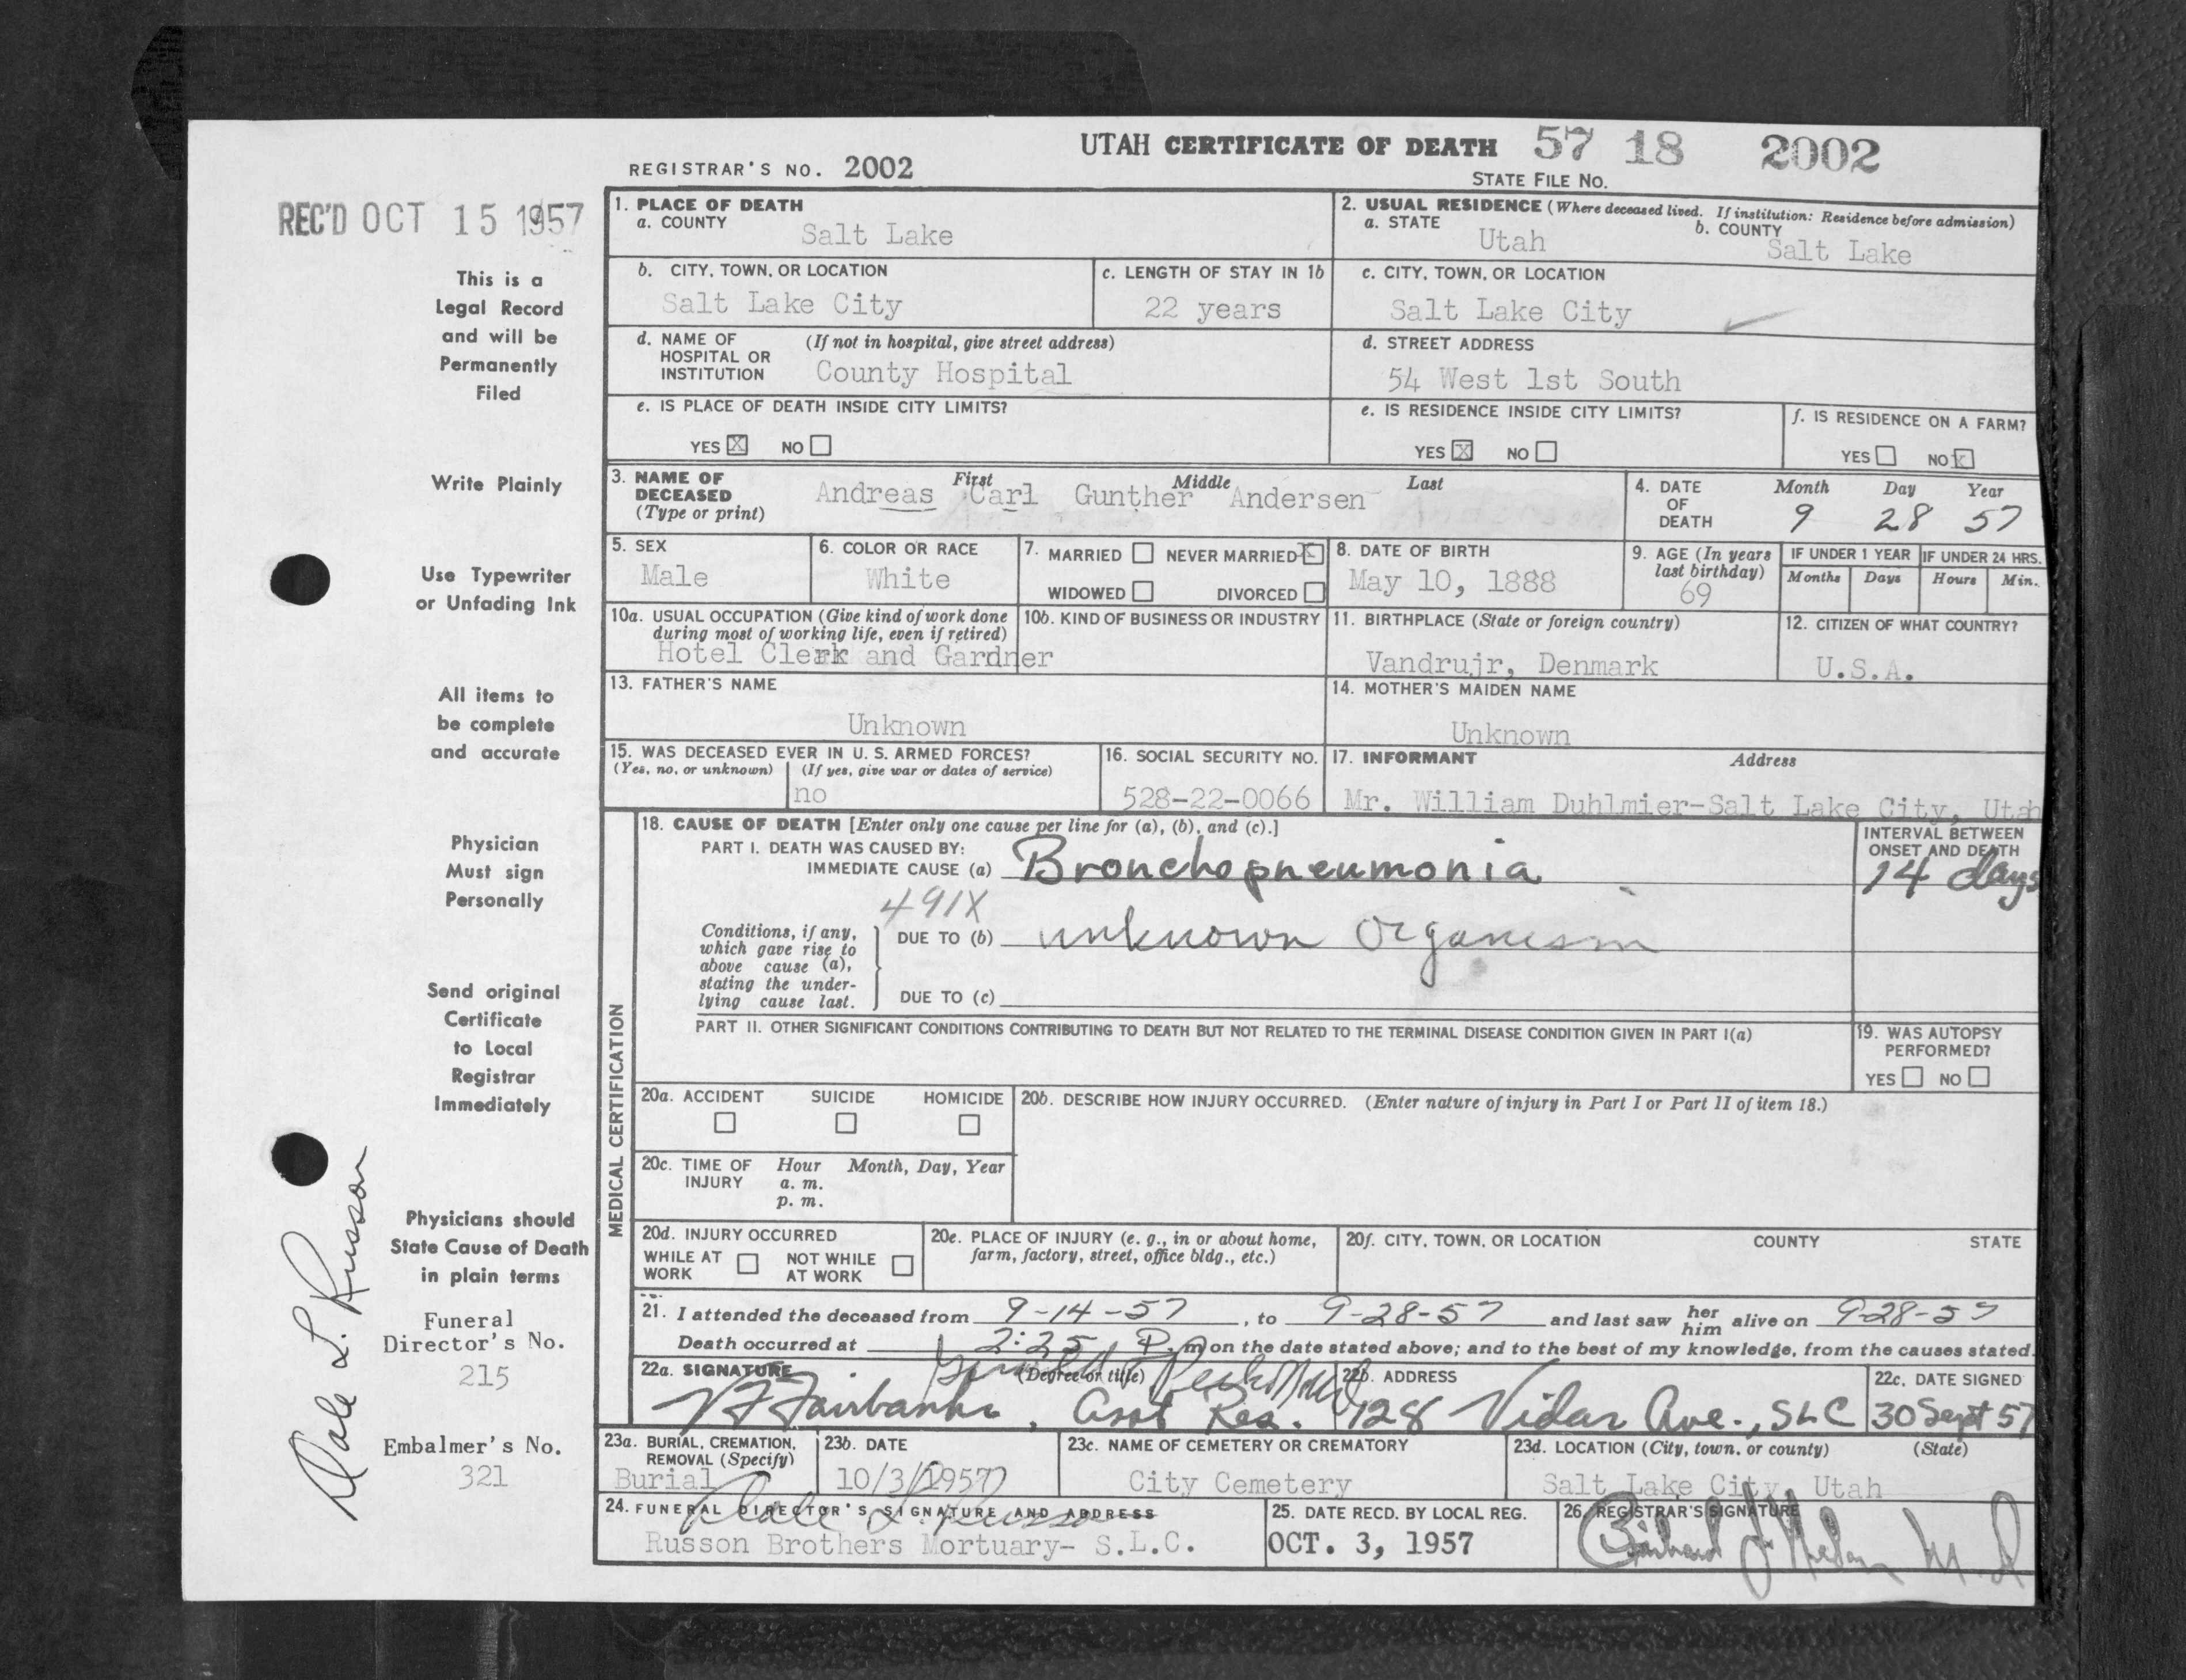 UTAH CERTIFICATE OF DEATH 57 18 2002
REGISTRAR'S NO. 2002
STATE FILE No.
REC'D OCT 15 1957
This is a
Legal Record
and will be
Permanently
Filed
Write Plainly
Use Typewriter
or Unfading Ink
All items to
be complete
and accurate
Physician
Must sign
Personally
Send original
Certificate
to Local
Registrar
Immediately
Physicians should
State Cause of Death
in plain terms
Funeral
Director's No.
215
Embalmer's No.
321
Dale L. Russon
1. PLACE OF DEATH
a. COUNTY
Salt Lake
2. USUAL RESIDENCE (Where deceased lived. If institution: Residence before admission)
a. STATE
Utah
b. COUNTY
Salt Lake
b. CITY, TOWN, OR LOCATION
Salt Lake City
c. LENGTH OF STAY IN 1b
22 years
c. CITY, TOWN, OR LOCATION
Salt Lake City
d. NAME OF (If not in hospital, give street address)
HOSPITAL OR
INSTITUTION
County Hospital
d. STREET ADDRESS
54 West 1st South
e. IS PLACE OF DEATH INSIDE CITY LIMITS?
YES X NO
e. IS RESIDENCE INSIDE CITY LIMITS?
YES X NO
f. IS RESIDENCE ON A FARM?
YES NO X
3. NAME OF
DECEASED
(Type or print)
First Middle Last
Andreas Carl Gunther Andersen
4. DATE
OF
DEATH
Month Day Year
9 28 57
5. SEX
Male
6. COLOR OR RACE
White
7. MARRIED NEVER MARRIED X
WIDOWED DIVORCED
8. DATE OF BIRTH
May 10, 1888
9. AGE (In years
last birthday)
69
IF UNDER 1 YEAR
Months Days
IF UNDER 24 HRS.
Hours Min.
10a. USUAL OCCUPATION (Give kind of work done
during most of working life, even if retired)
Hotel Clerk and Gardner
10b. KIND OF BUSINESS OR INDUSTRY
11. BIRTHPLACE (State or foreign country)
Vandrujr, Denmark
12. CITIZEN OF WHAT COUNTRY?
U.S.A.
13. FATHER'S NAME
Unknown
14. MOTHER'S MAIDEN NAME
Unknown
15. WAS DECEASED EVER IN U. S. ARMED FORCES?
(Yes, no, or unknown) (If yes, give war or dates of service)
no
16. SOCIAL SECURITY NO.
528-22-0066
17. INFORMANT Address
Mr. William Duhlmier-Salt Lake City, Utah
MEDICAL CERTIFICATION
18. CAUSE OF DEATH [Enter only one cause per line for (a), (b), and (c).]
PART I. DEATH WAS CAUSED BY:
IMMEDIATE CAUSE (a) Bronchopneumonia
INTERVAL BETWEEN
ONSET AND DEATH
14 days
491X
Conditions, if any,
which gave rise to
above cause (a),
stating the under-
lying cause last.
DUE TO (b) unknown organism
DUE TO (c)
PART II. OTHER SIGNIFICANT CONDITIONS CONTRIBUTING TO DEATH BUT NOT RELATED TO THE TERMINAL DISEASE CONDITION GIVEN IN PART I(a)
19. WAS AUTOPSY
PERFORMED?
YES NO
20a. ACCIDENT SUICIDE HOMICIDE
20b. DESCRIBE HOW INJURY OCCURRED. (Enter nature of injury in Part I or Part II of item 18.)
20c. TIME OF Hour Month, Day, Year
INJURY a. m.
p. m.
20d. INJURY OCCURRED
WHILE AT NOT WHILE
WORK AT WORK
20e. PLACE OF INJURY (e. g., in or about home,
farm, factory, street, office bldg., etc.)
20f. CITY, TOWN, OR LOCATION COUNTY STATE
21. I attended the deceased from 9-14-57, to 9-28-57 and last saw her him alive on 9-28-57
Death occurred at 2:25 P. m on the date stated above; and to the best of my knowledge, from the causes stated.
22a. SIGNATURE (Degree or title)
Fairbanks, Asst Res.
22b. ADDRESS
128 Vidas Ave., SLC
22c. DATE SIGNED
30 Sept 57
23a. BURIAL, CREMATION,
REMOVAL (Specify)
Burial
23b. DATE
10/3/1957
23c. NAME OF CEMETERY OR CREMATORY
City Cemetery
23d. LOCATION (City, town, or county) (State)
Salt Lake City, Utah
24. FUNERAL DIRECTOR'S SIGNATURE AND ADDRESS
Dale L. Russon
Russon Brothers Mortuary- S.L.C.
25. DATE RECD. BY LOCAL REG.
OCT. 3, 1957
26. REGISTRAR'S SIGNATURE
M.D